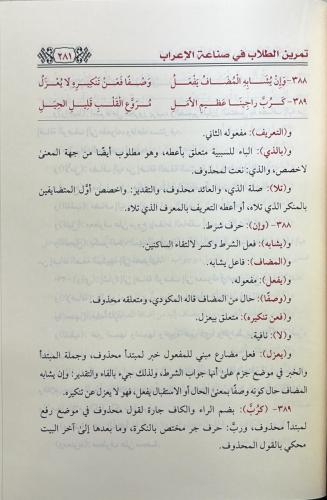 تمرين الطلاب في صناعة الإعراب
٢٨١
٣٨٨- وَإِنْ يُشَابِهِ الْمُضَافُ يَفْعَلُ وَصْفًا فَعَنْ تَنْكِيرِهِ لَا يُعْزَلُ
٣٨٩- كَرُبَّ رَاجِينَا عَظِيمِ الأَمَلِ مُرَوَّعِ الْقَلْبِ قَلِيلِ الْحِيَلِ
و(التعريف): مفعوله الثاني.
و(بالذي): الباء للسببية متعلق بأعطه، وهو مطلوب أيضًا من جهة المعنىٰ
لاخصص، والذي: نعت لمحذوف.
و(تلا): صلة الذي، والعائد محذوف، والتقدير: واخصص أوَّل المتضايفين
بالمنكر الذي تلاه، أو أعطه التعريف بالمعرف الذي تلاه.
٣٨٨- (وإن): حرف شرط.
و(يشابه): فعل الشرط وكسر لالتقاء الساكنين.
و(المضاف): فاعل يشابه.
و(يفعل): مفعوله.
و(وصفًا): حال من المضاف قاله المكودي، ومتعلقه محذوف.
و(فعن تنكيره): متعلق بيعزل.
و(لا): نافية.
و(يعزل): فعل مضارع مبني للمفعول خبر لمبتدأ محذوف، وجملة المبتدأ
والخبر في موضع جزم علىٰ أنها جواب الشرط، ولذلك جيء بالفاء والتقدير: وإن يشابه
المضاف حال كونه وصفًا بمعنىٰ الحال أو الاستقبال يفعل، فهو لا يعزل عن تنكيره.
٣٨٩- (كرُبَّ): بضم الراء والكاف جارة لقول محذوف في موضع رفع
لمبتدأ محذوف، وربَّ: حرف جر مختص بالنكرة، وما بعدها إلىٰ آخر البيت
محكي بالقول المحذوف.